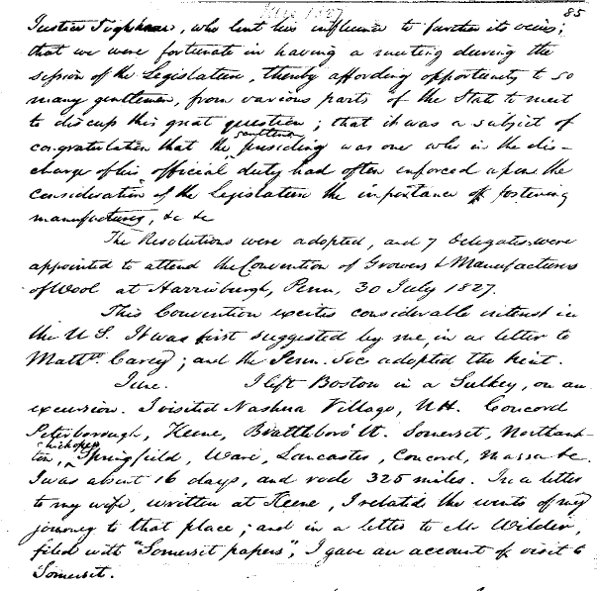 June 1827 85
Justice Tighman, who lent his influence to further its views;
that we were fortunate in having a meeting during the
session of the Legislature, thereby affording opportunity to so
many gentlemen, from various parts of the State to meet
to discuss this great question; that it was a subject of
gentleman
congratulation that the presiding was one who in the dis-
charge of his official duty had often enforced upon the
consideration of the Legislature the importance of fostering
manufactures, &c &c
The Resolutions were adopted, and 7 delegates were
appointed to attend the Convention of Growers & Manufacturers
of Wool at Harrisburgh, Penn, 30 July 1827.
This Convention excites considerable interest in
the U S. It was first suggested by me, in a letter to
Matth. Carey; and the Penn. Soc. adopted the hint.
June. I left Boston in a Sulkey, on an
excursion. I visited Nashua Village, N.H. Concord
Peterborough, Keene, Brattleboro' Vt. Somerset, Northamp-
Chickopee
ton, Springfield, Ware, Lancaster, Concord, Massa &c.
I was about 16 days, and rode 325 miles. In a letter
to my wife, written at Keene, I related the events of my
journey to that place; and in a letter to Mr Wilder,
filed with "Somerset papers", I gave an account of visit to
Somerset.